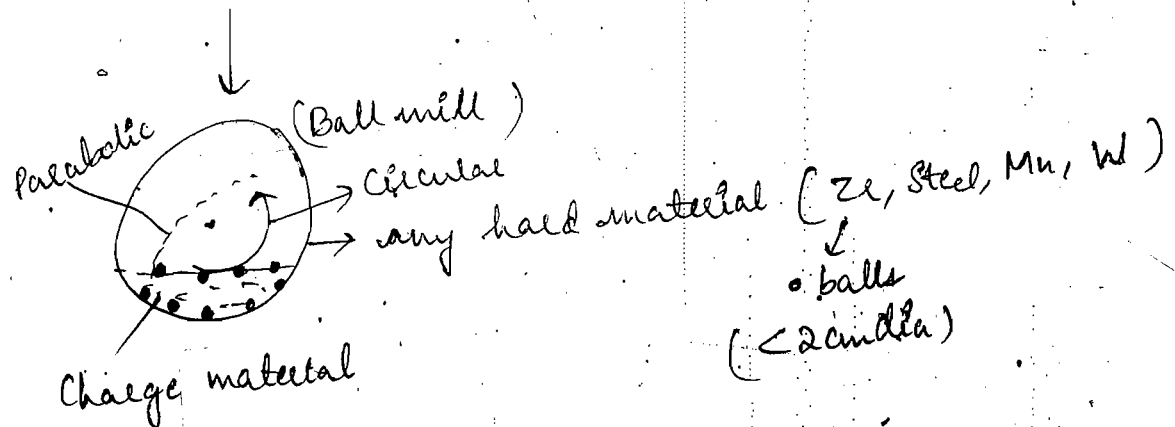 (Ball mill)
Parabolic
Circular
any hard material (Zr, Steel, Mn, W)
• balls
(<2cm dia)
Charge material